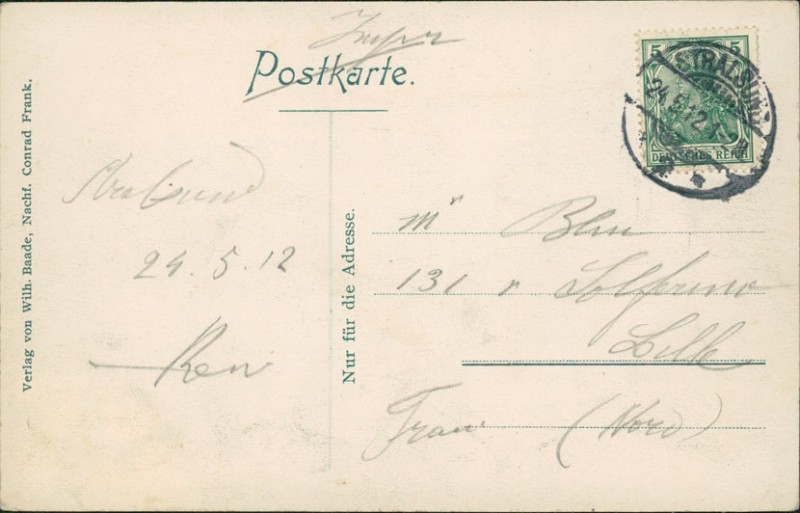 Postkarte.
5 5
STRALSUND
24.5.12.
DEUTSCHES REICH
Verlag von Wilh. Baade, Nachf. Conrad Frank.
Nur für die Adresse.
Stralsund
24.5.12
131 r Solferino
Lille
(Nord)